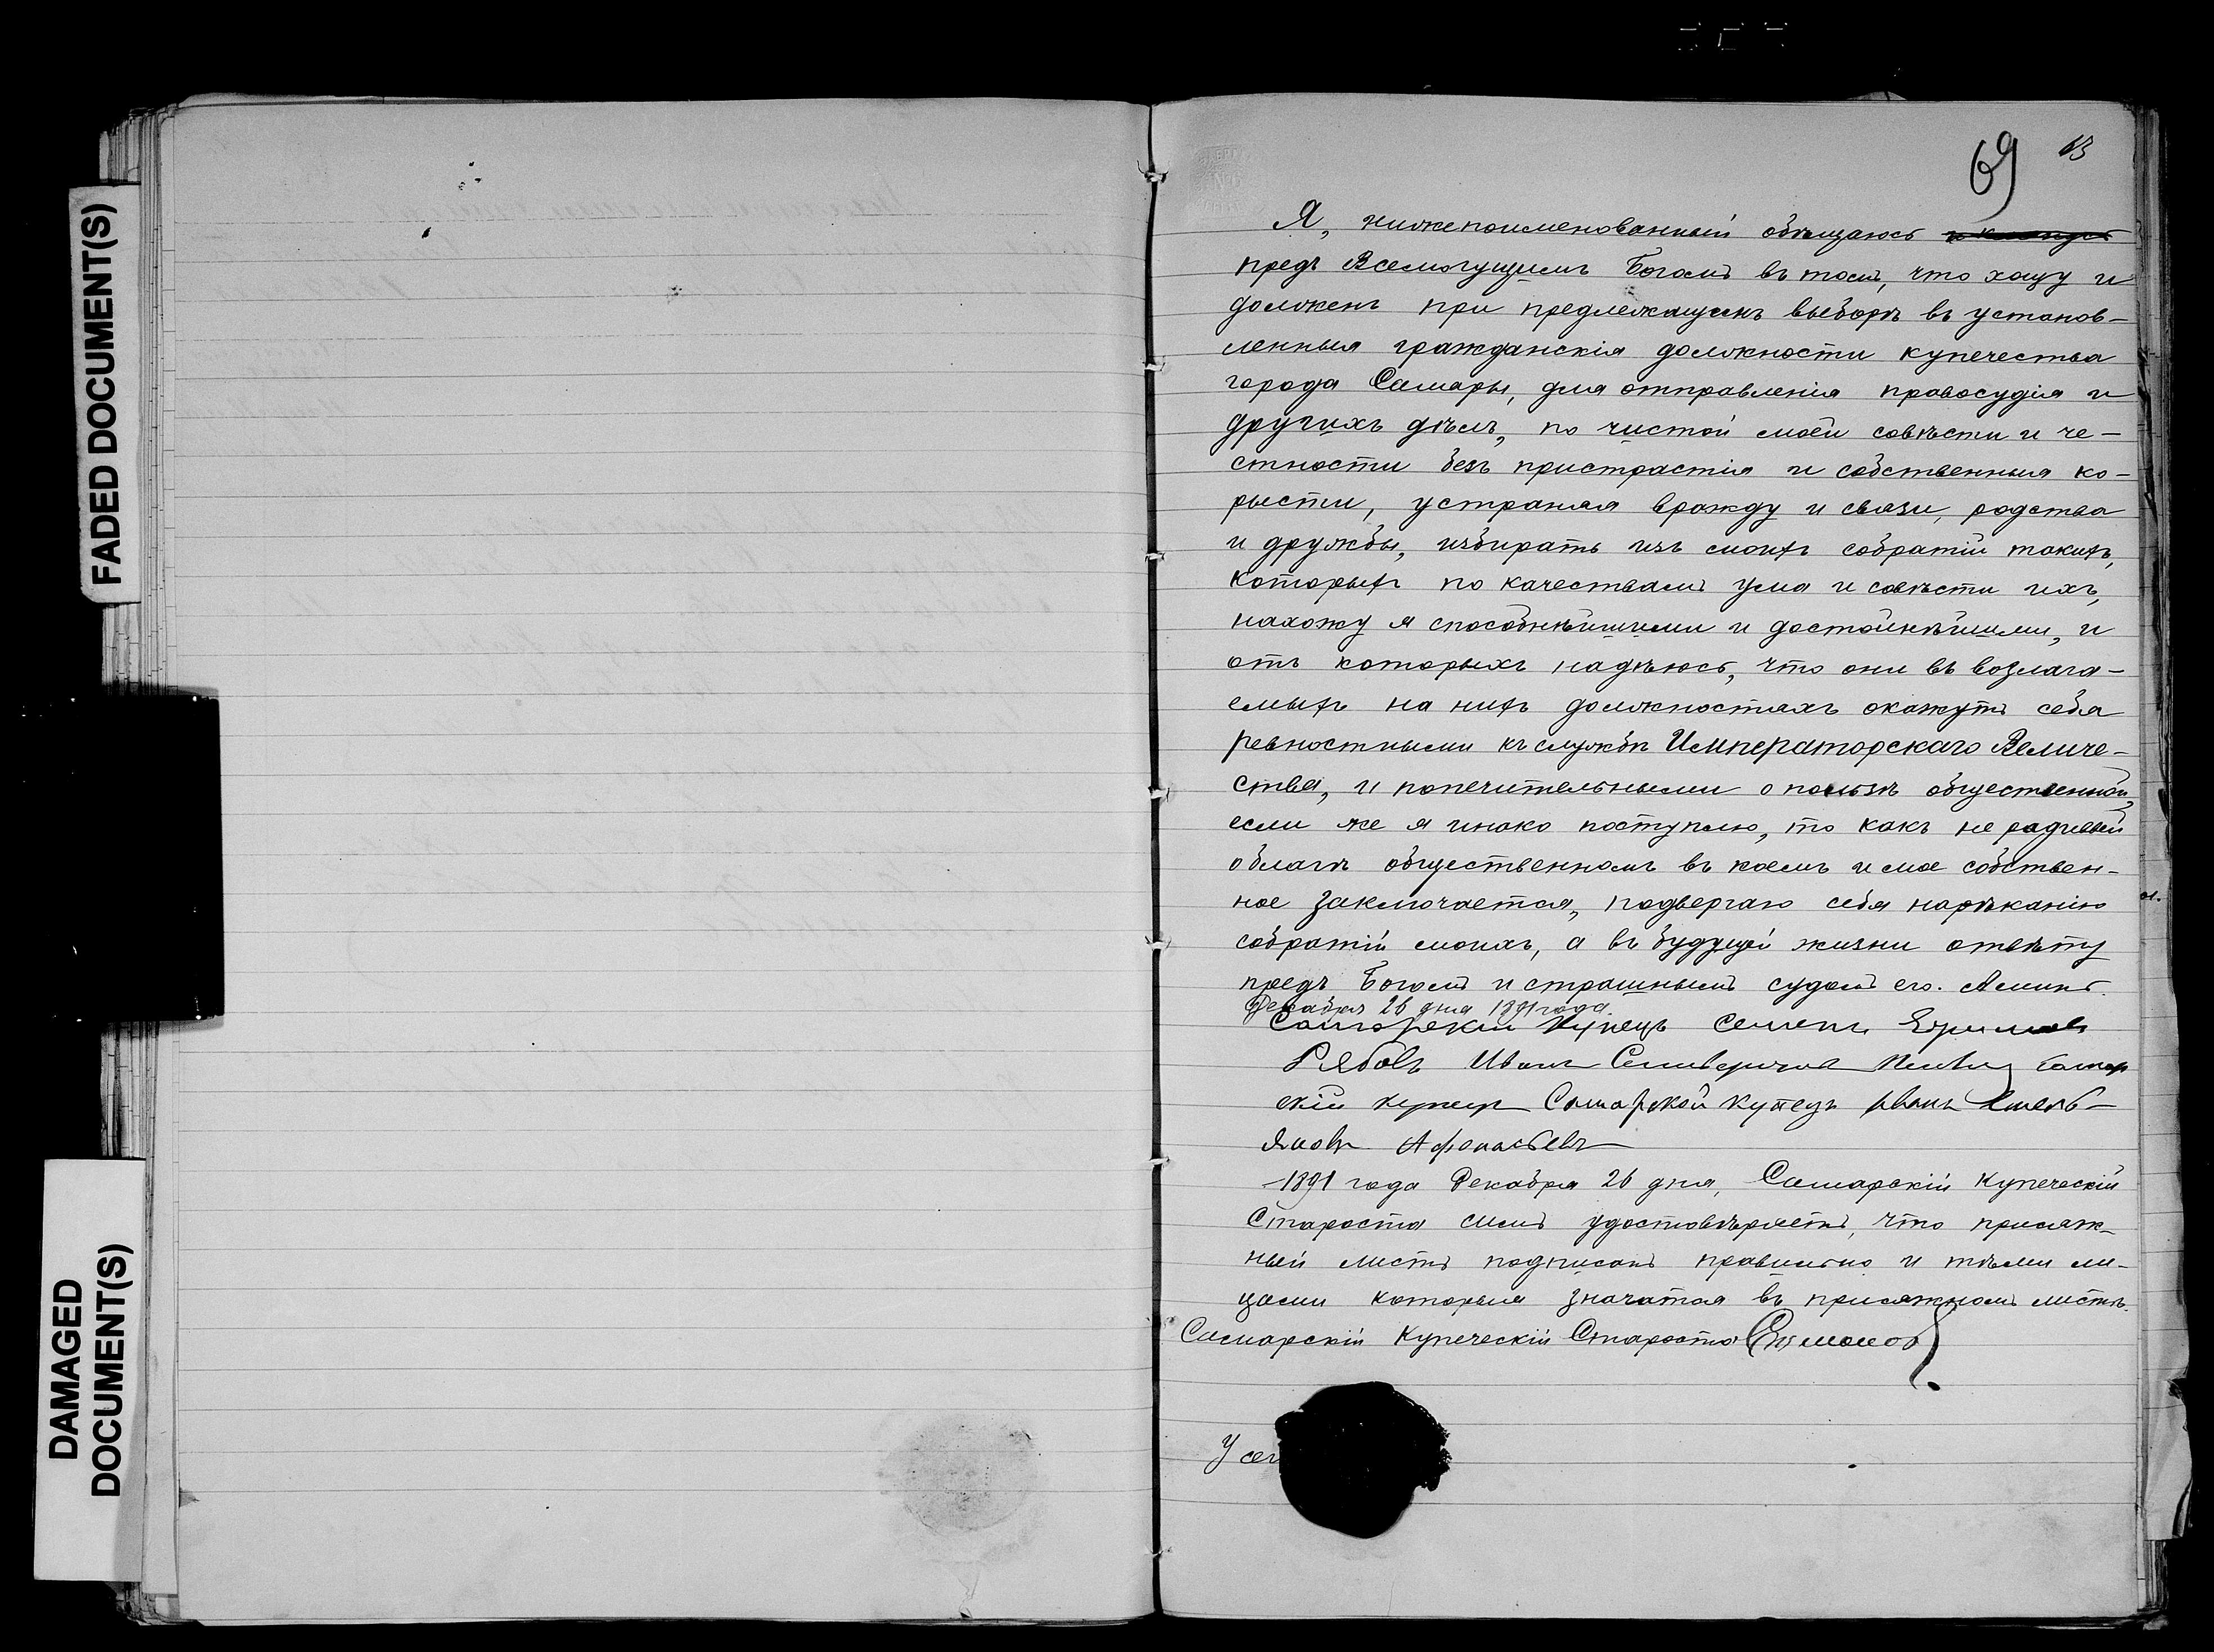 FADED DOCUMENT(S)
DAMAGED
DOCUMENT(S)
69 13
Я, нижепоименованный обѣщаюсь и клянусь
предъ Всемогущимъ Богомъ въ томъ, что хощу и
долженъ при предлежащемъ выборѣ въ установ-
ленныя гражданскія должности купечества
города Самары, для отправленія правосудія и
другихъ дѣлъ, по чистой моей совѣсти и че-
стности безъ пристрастія и собственныя ко-
рысти, устраняя вражду и связи, родства
и дружбы, избирать изъ моихъ собратій такихъ,
которыхъ по качествамъ ума и совѣсти ихъ,
нахожу я способнѣйшими и достойнѣйшими, и
отъ которыхъ надѣюсь, что они въ возлага-
емыхъ на нихъ должностяхъ окажутъ себя
ревностными къ службѣ Императорскаго Величе-
ства, и попечительными о пользѣ общественной,
если же я инако поступлю, то какъ не радивый
о благѣ общественномъ въ коемъ и мое собствен-
ное заключается, подвергаю себя нарѣканію
собратій моихъ, а въ будущей жизни отвѣту
предъ Богомъ и страшнымъ судомъ его. Аминь.
Декабря 26 дня 1891 года.
Самарскій Купецъ Семенъ
Рябовъ Иванъ Самар
скій купецъ Самарской купецъ Иванъ
Яковъ Афонасьевъ
1891 года Декабря 26 дня, Самарскій Купеческій
Староста симъ удостовѣряетъ, что присяж-
ный листъ подписанъ правильно и тѣми ли-
цами которыя значатся въ присяжномъ листѣ.
Самарскій Купеческій Староста
У сег